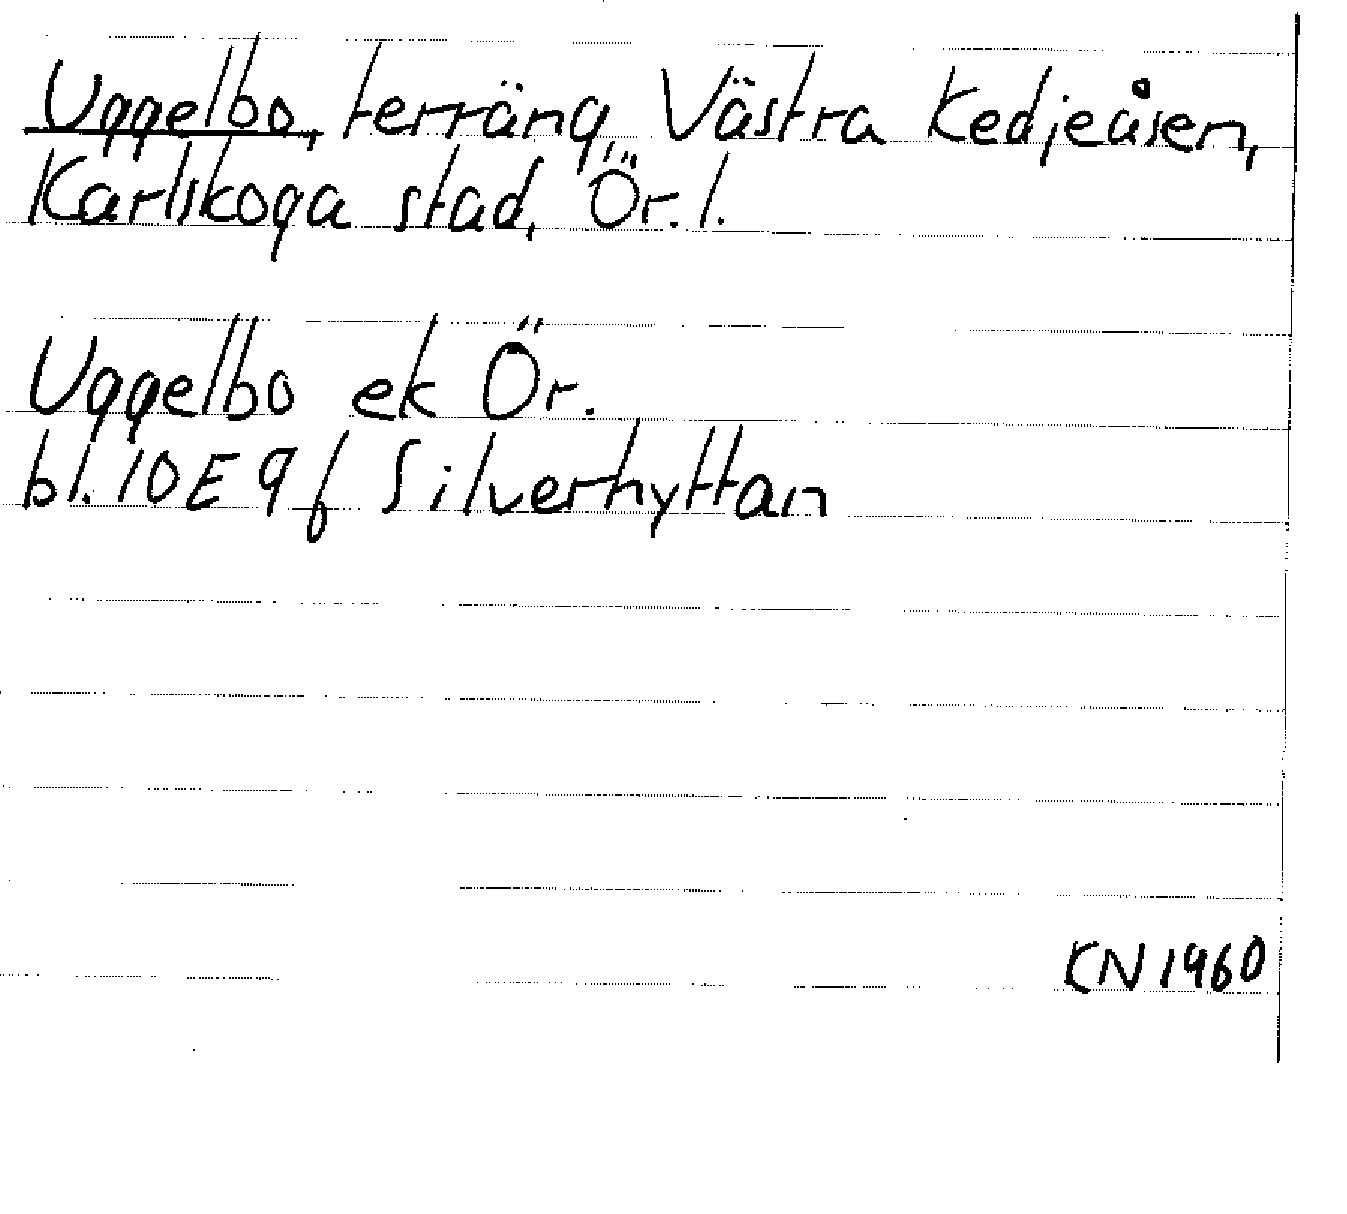 Uggelbo, terräng, Västra Kedjeåsen,
Karlskoga stad, Ör. l.
Uggelbo ek Ör.
bl. 10E 9f Silverhyttan
KN 1960